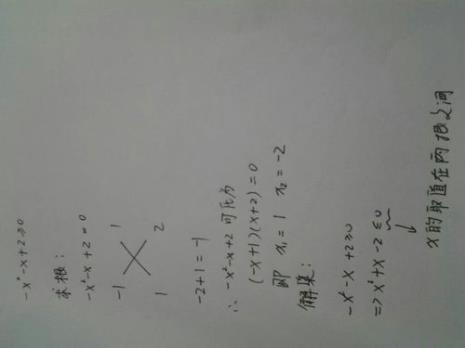 -x²-x+2≥0
求根：
-x²-x+2=0
-1 1
1 2
-2+1=-1
∴ -x²-x+2可化为
(-x+1)(x+2)=0
即 x₁=1 x₂=-2
解集：
-x²-x+2≥0
=>x²+x-2≤0
↓
x的取值在两根之间